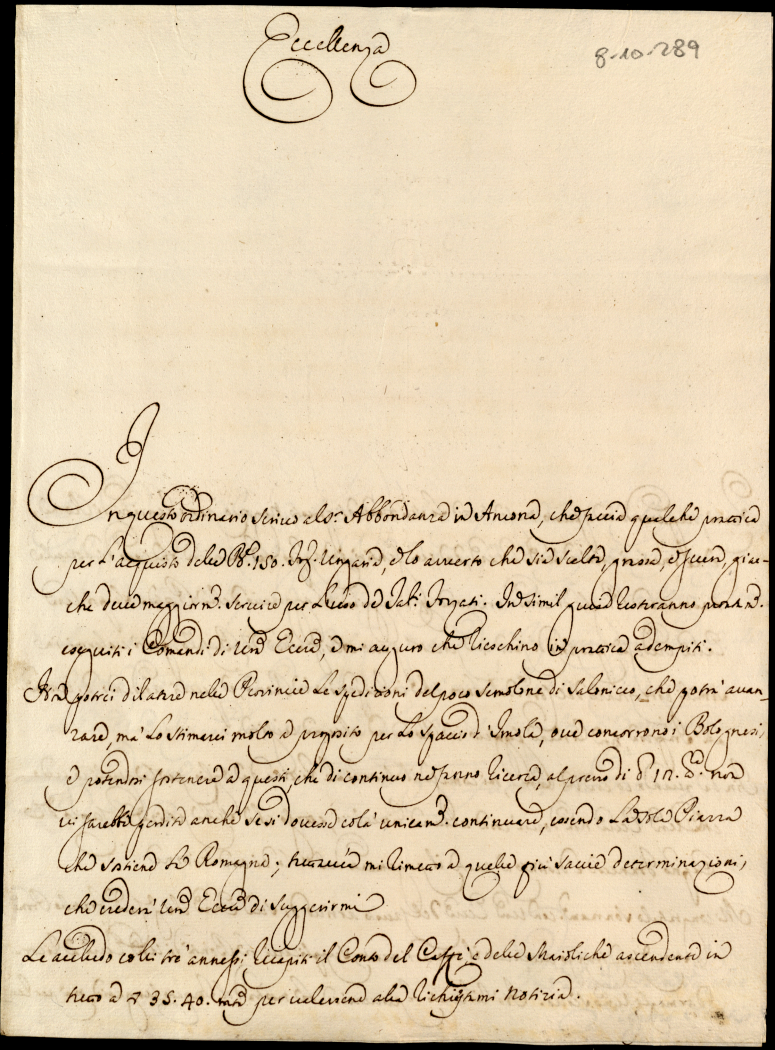 Eccellenza
8-10-289
In questo ordinario scrivo al Sr. Abbondanza in Ancona, che faccia qualche prattica
per l'acquisto delle 150. Ungaria, e lo avverto che sia scelta, grossa, e sicura, giac-
che deve maggiorm.e servire per de Forzati. In simil restaranno
eseguiti i Comandi di Ecc.a, e mi auguro che in prattica adempiti.
potrei dilatare nelle Provincie le spedizioni del poco semolone di Salonicco, che potrà avan-
zare, ma lo stimerei molto a proposito per lo spaccio d'Imola, ove concorrono i Bolognesi,
e potendosi sostenere a questi, che di continuo ne fanno ricerca, al prezzo di 17. non
vi sarebbe perdita anche se si dovesse colà unicam.e continuare, essendo la sola Piazza
che sostiene la Romagna; tuttavia mi rimetto a quelle più savie determinazioni,
che crederà Ecc.a di suggerirmi
Le accludo colli tre annessi recapiti il Conto del Caffè e delle Maioliche ascendente in
tutto a 35.40. per valersene alla notizia.